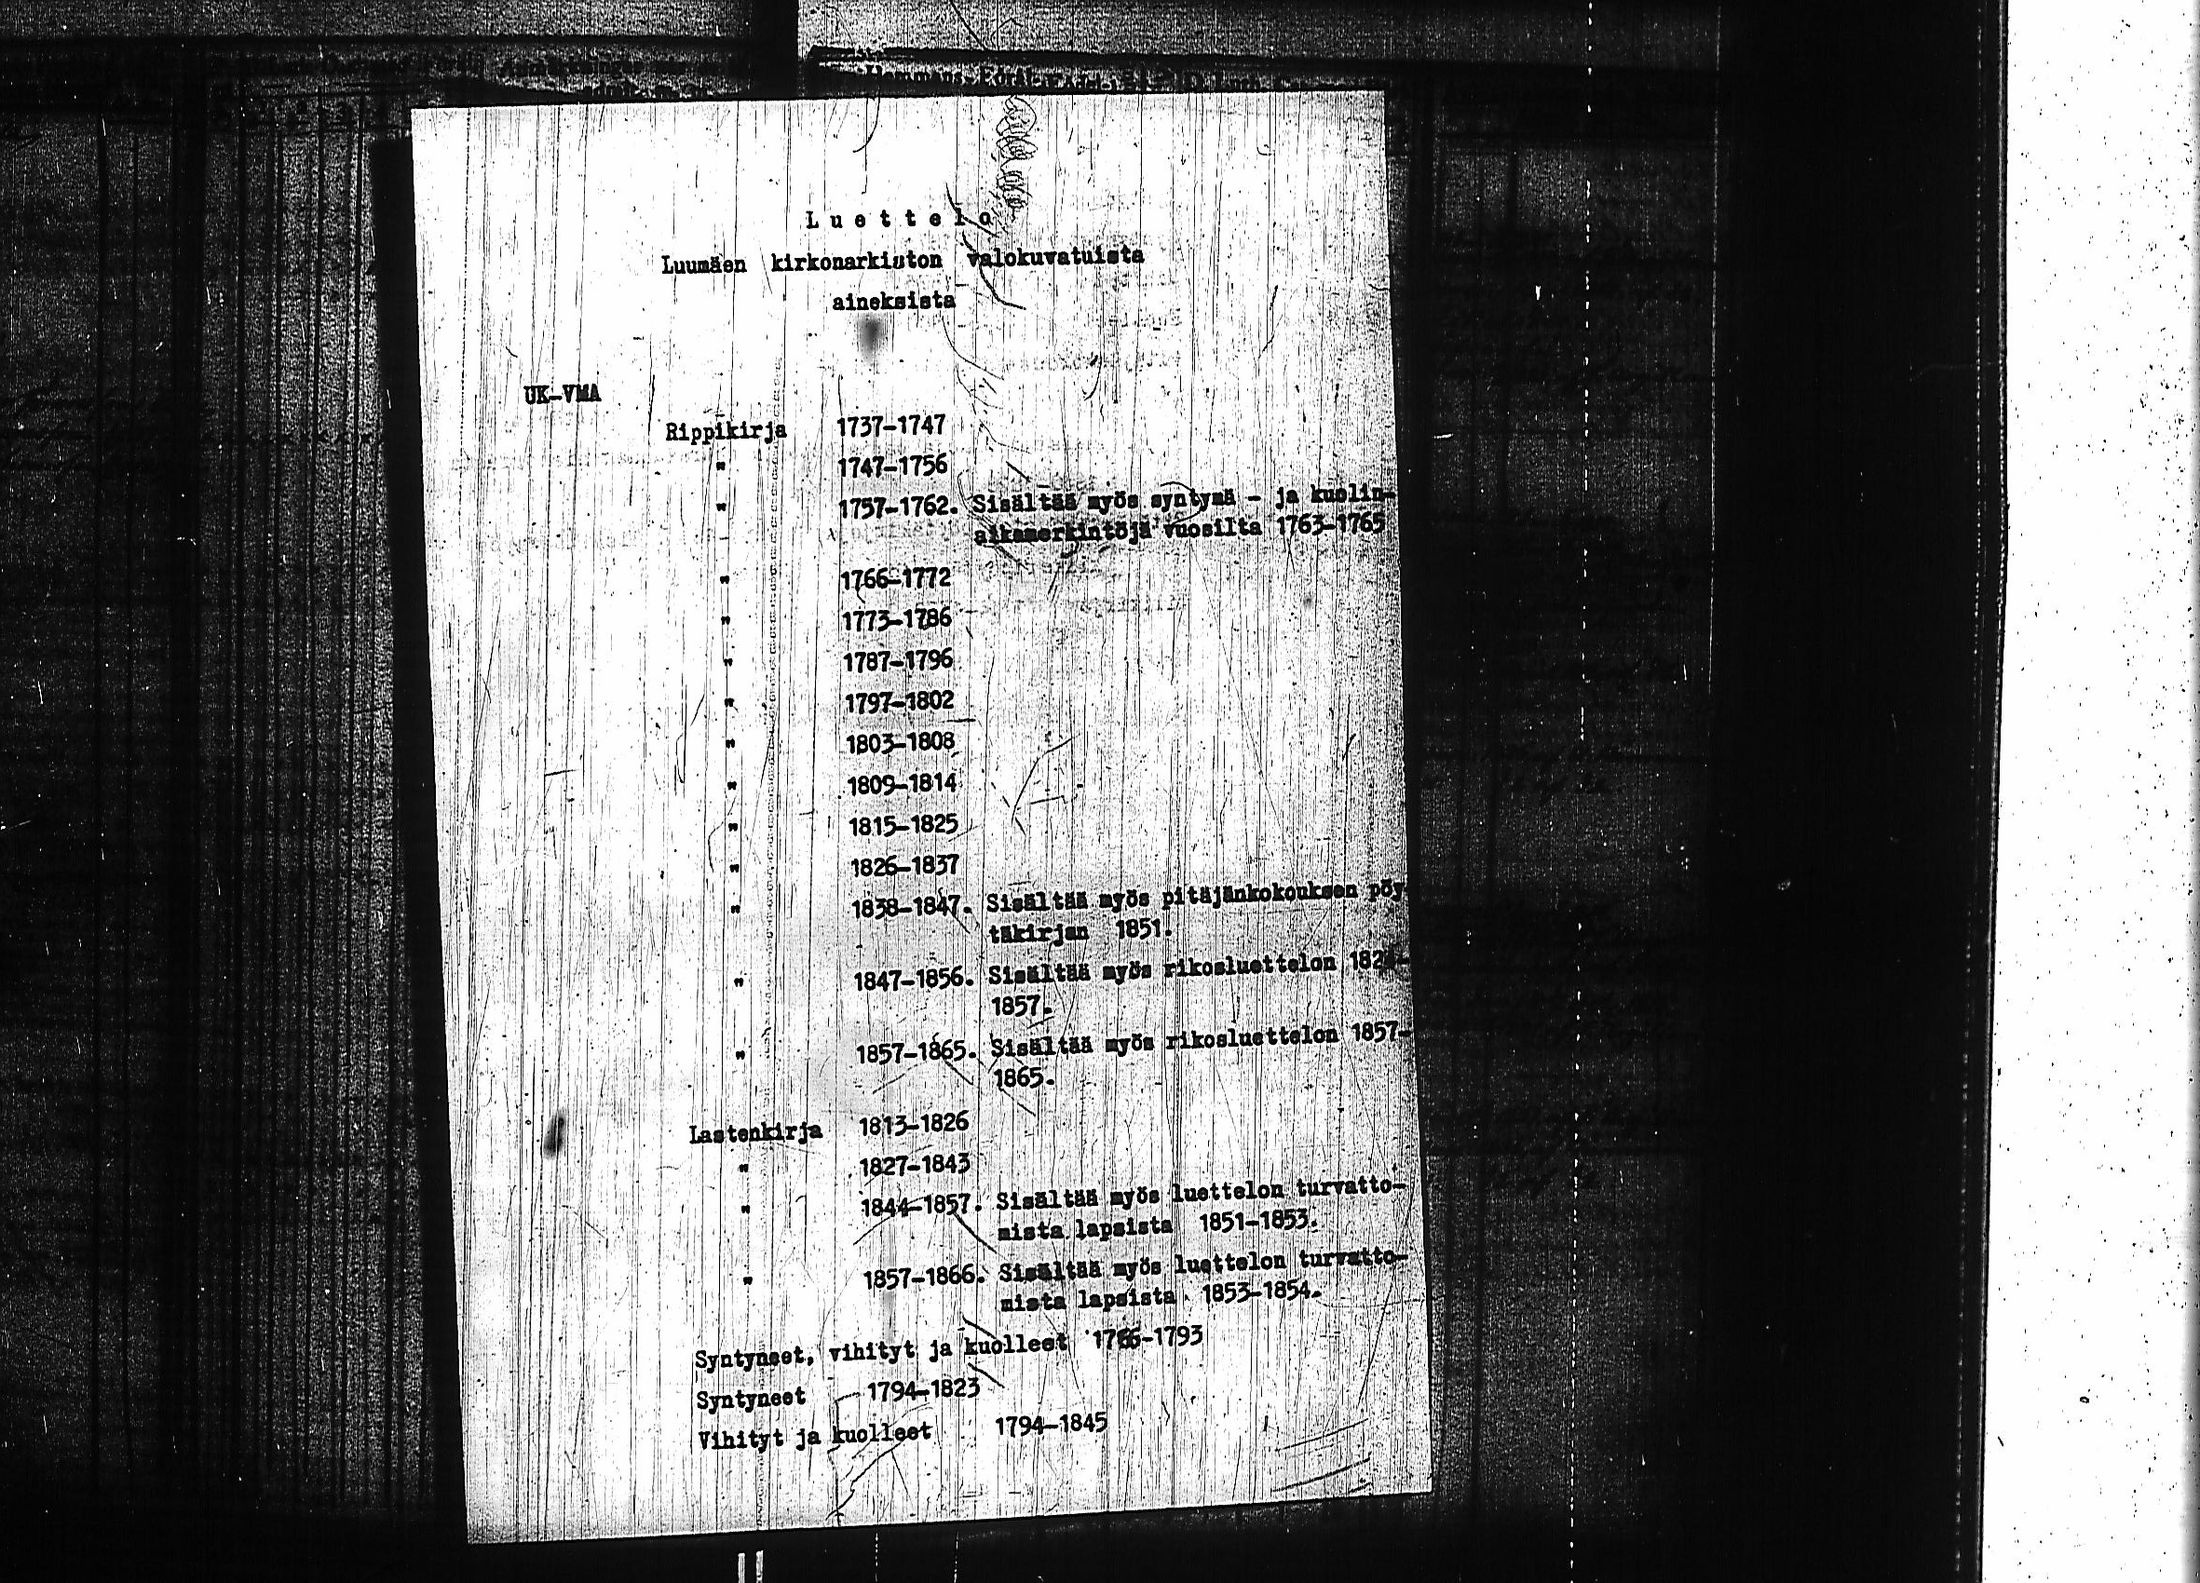 Luettelo
Luumäen kirkonarkiston valokuvatuista
aineksista
UK-VMA
Rippikirja 1737-1747
" 1747-1756
" 1757-1762. Sisältää myös syntymä - ja kuolin-
aikamerkintöjä vuosilta 1763-1765
" 1766-1772
" 1773-1786
" 1787-1796
" 1797-1802
" 1803-1808
" 1809-1814
" 1815-1825
" 1826-1837
" 1838-1847. Sisältää myös pitäjänkokouksen pöy
täkirjan 1851.
" 1847-1856. Sisältää myös rikosluettelon
1857.
" 1857-1865. Sisältää myös rikosluettelon 1857-
1865.
Lastenkirja 1813-1826
" 1827-1843
" 1844-1857. Sisältää myös luettelon turvatto-
mista lapsista 1851-1853.
" 1857-1866. Sisältää myös luettelon turvatto-
mista lapsista 1853-1854.
Syntyneet, vihityt ja kuolleet 1766-1793
Syntyneet 1794-1823
Vihityt ja kuolleet 1794-1845